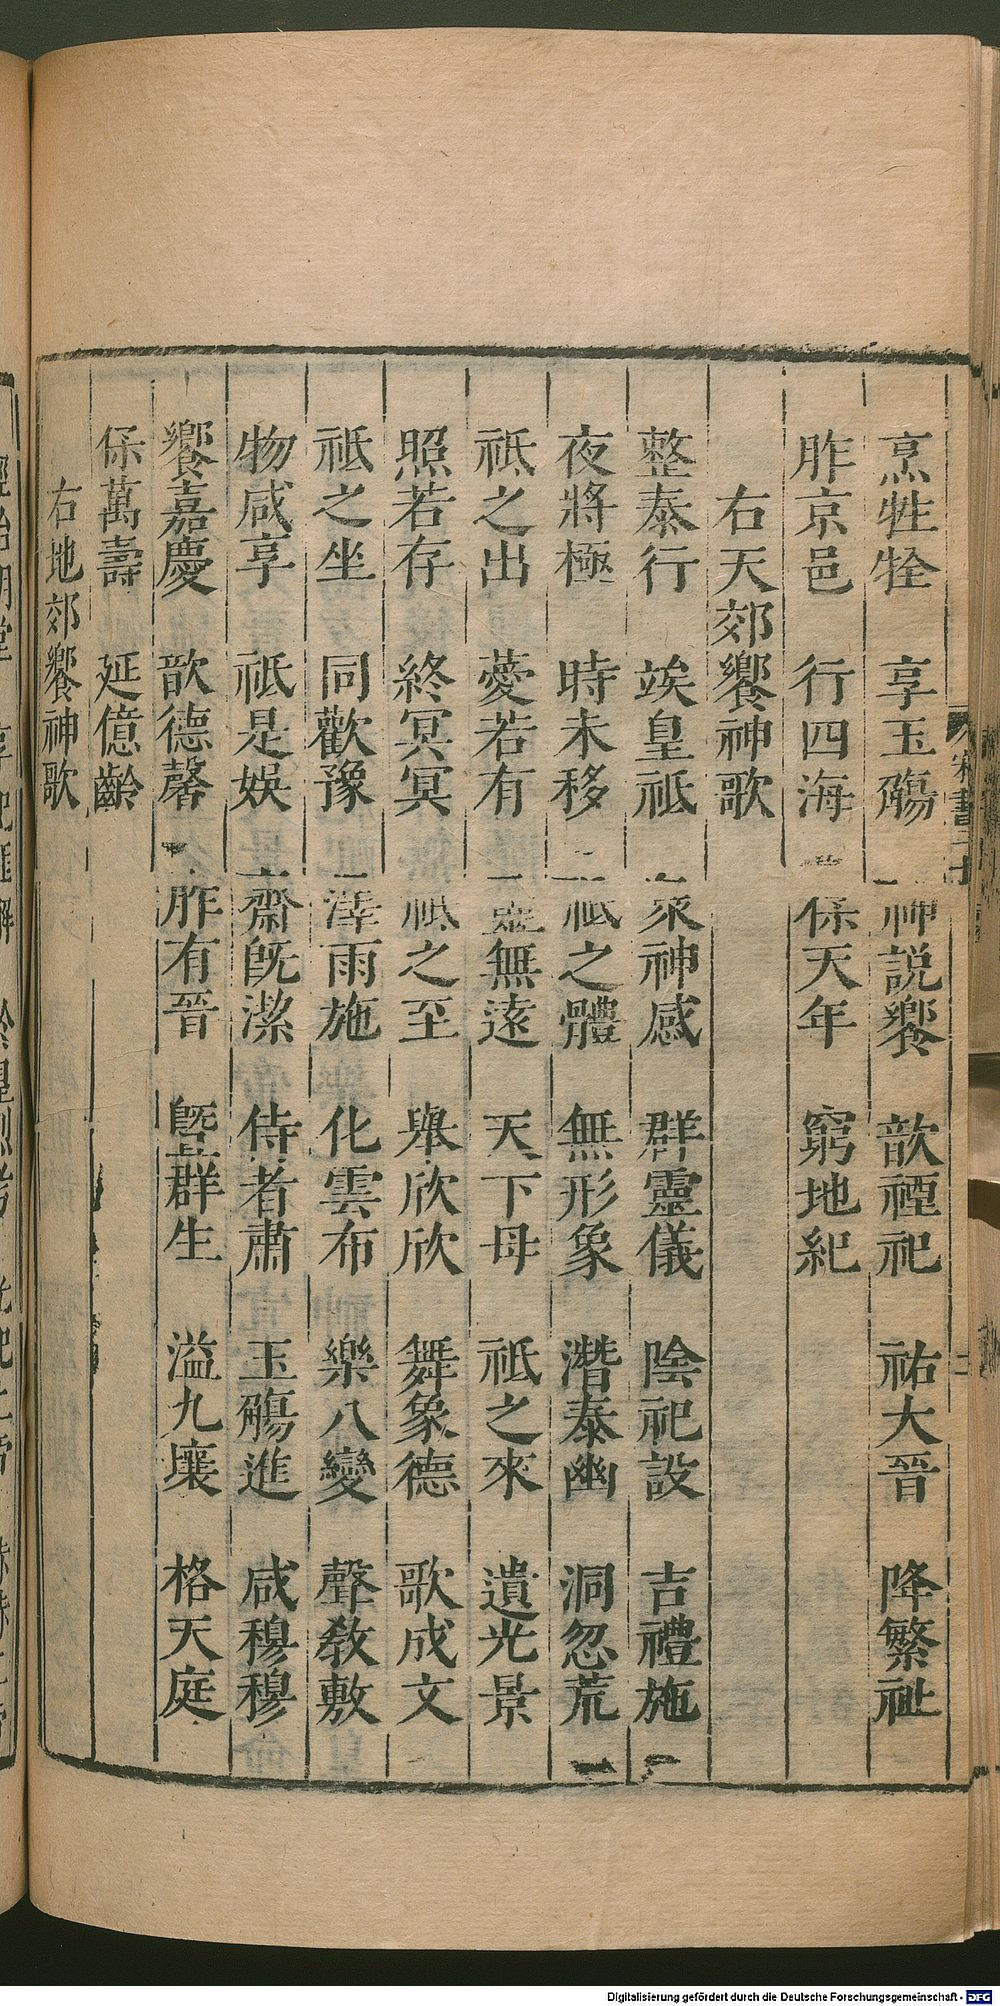 烹牲牷 享玉觴 神說饗 歆禋祀 祐大晉 降繁祉
胙京邑 行四海 保天年 窮地紀
右天郊饗神歌
整泰行 竢皇祇 衆神感 群靈儀 陰祀設 吉禮施
夜將極 時未移 祇之體 無形象 潛泰幽 洞忽荒
祇之出 薆若有 靈無遠 天下母 祇之來 遺光景
照若存 終冥冥 祇之至 舉欣欣 舞象德 歌成文
祇之坐 同歡豫 澤雨施 化雲布 樂八變 聲敎敷
物咸享 祇是娛 齋旣潔 侍者肅 玉觴進 咸穆穆
饗嘉慶 歆德馨 胙有晉 曁群生 溢九壤 格天庭
保萬壽 延億齡
右地郊饗神歌
Digitalisierung gefördert durch die Deutsche Forschungsgemeinschaft - DFG